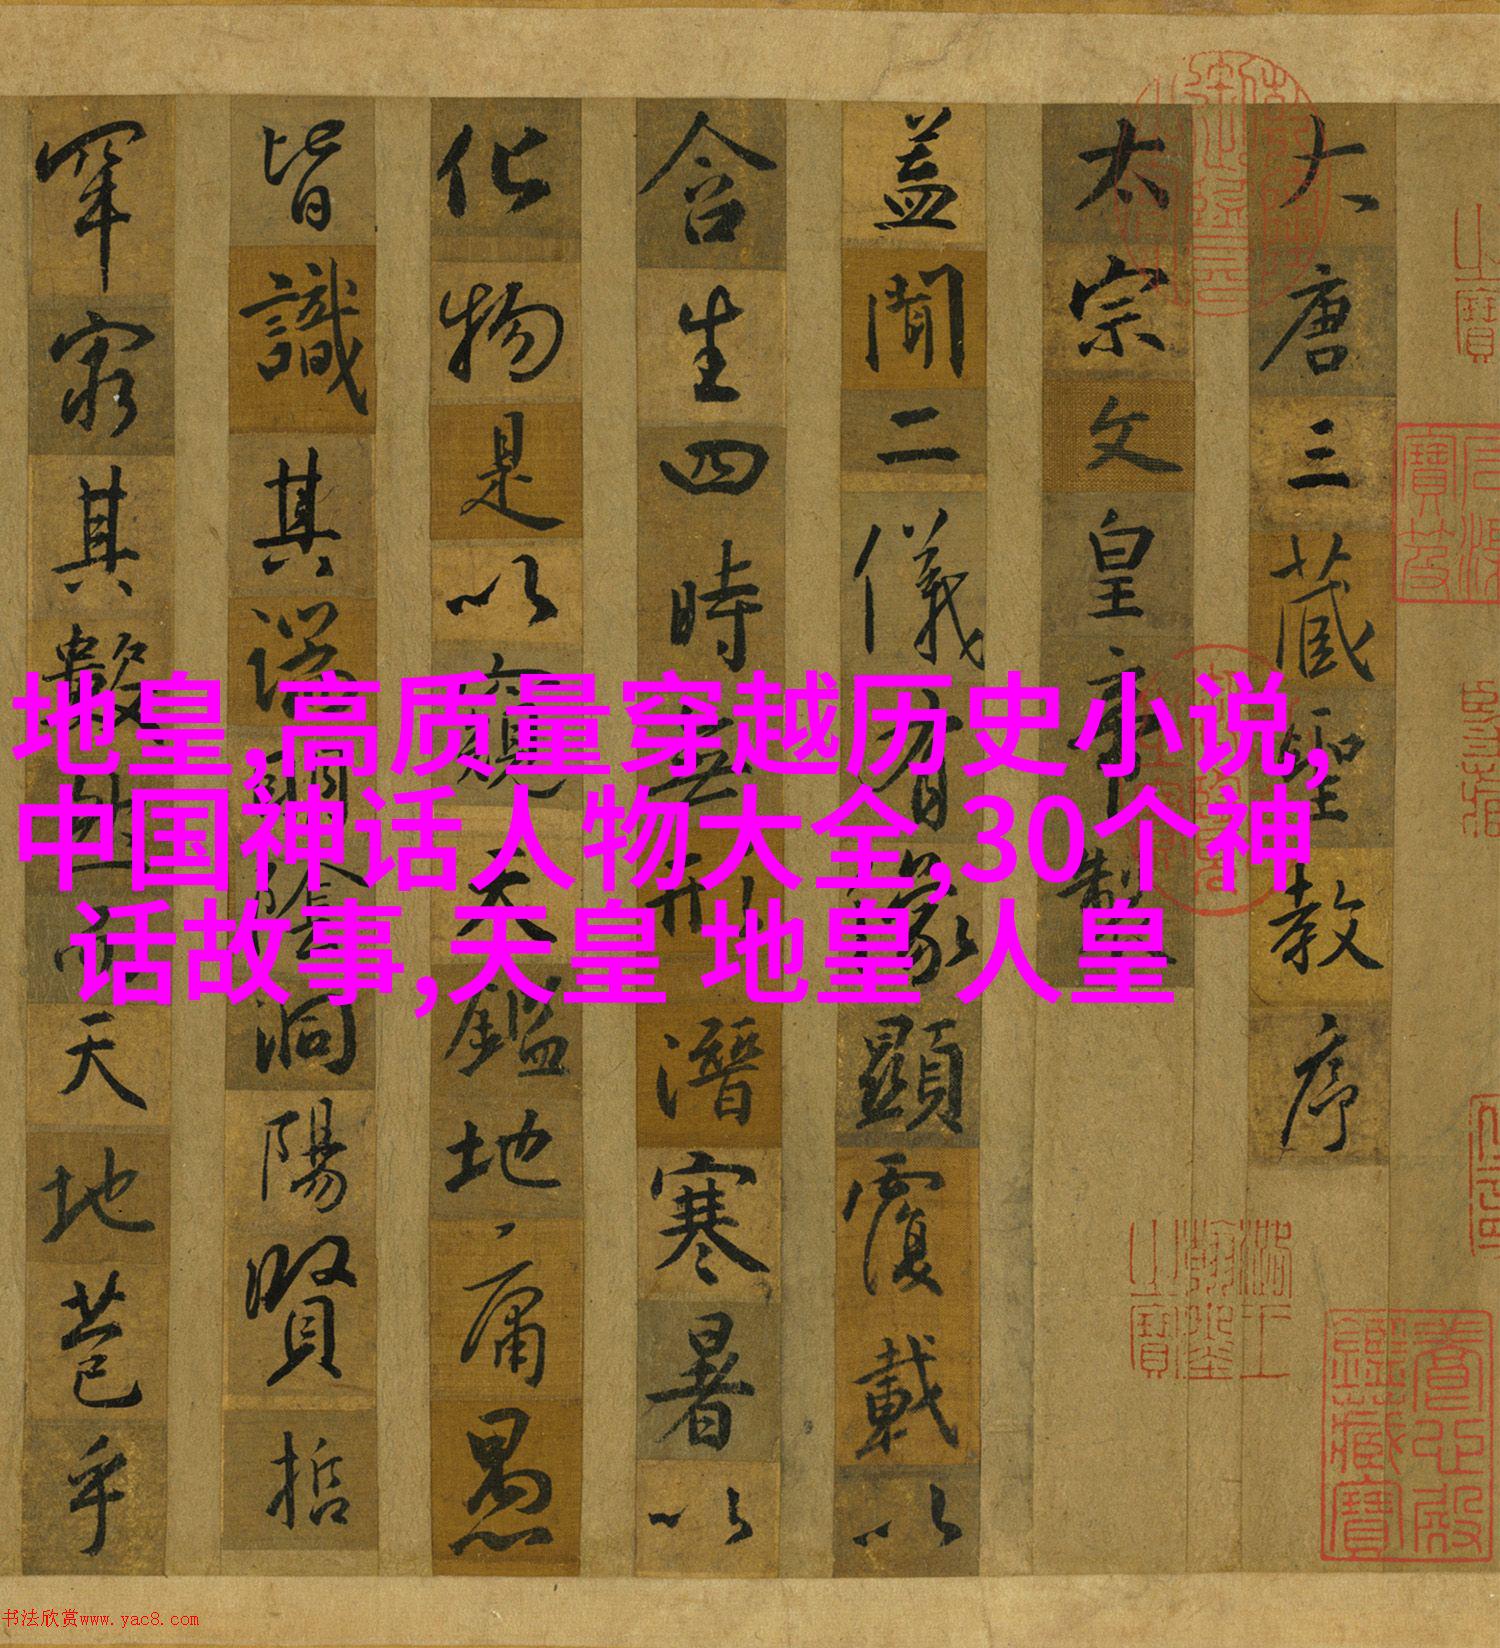 大唐三藏聖教序
太宗文皇帝製
盖聞二儀有象顯覆載以
含生四時無形潛寒暑以
化物是以窺天鑑地庸愚
皆識其端明陰洞陽賢哲
罕窮其數然而天地苞乎
地皇,高质量穿越历史小说,
中国神话人物大全,30个神
话故事,天皇 地皇 人皇
養心殿鑑藏寶
书法欣赏www.yac8.com